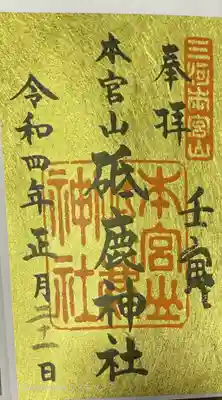 三河本宮山
奉拝
壬寅
本宮山 砥鹿神社
本宮山
神社
令和四年正月二十一日